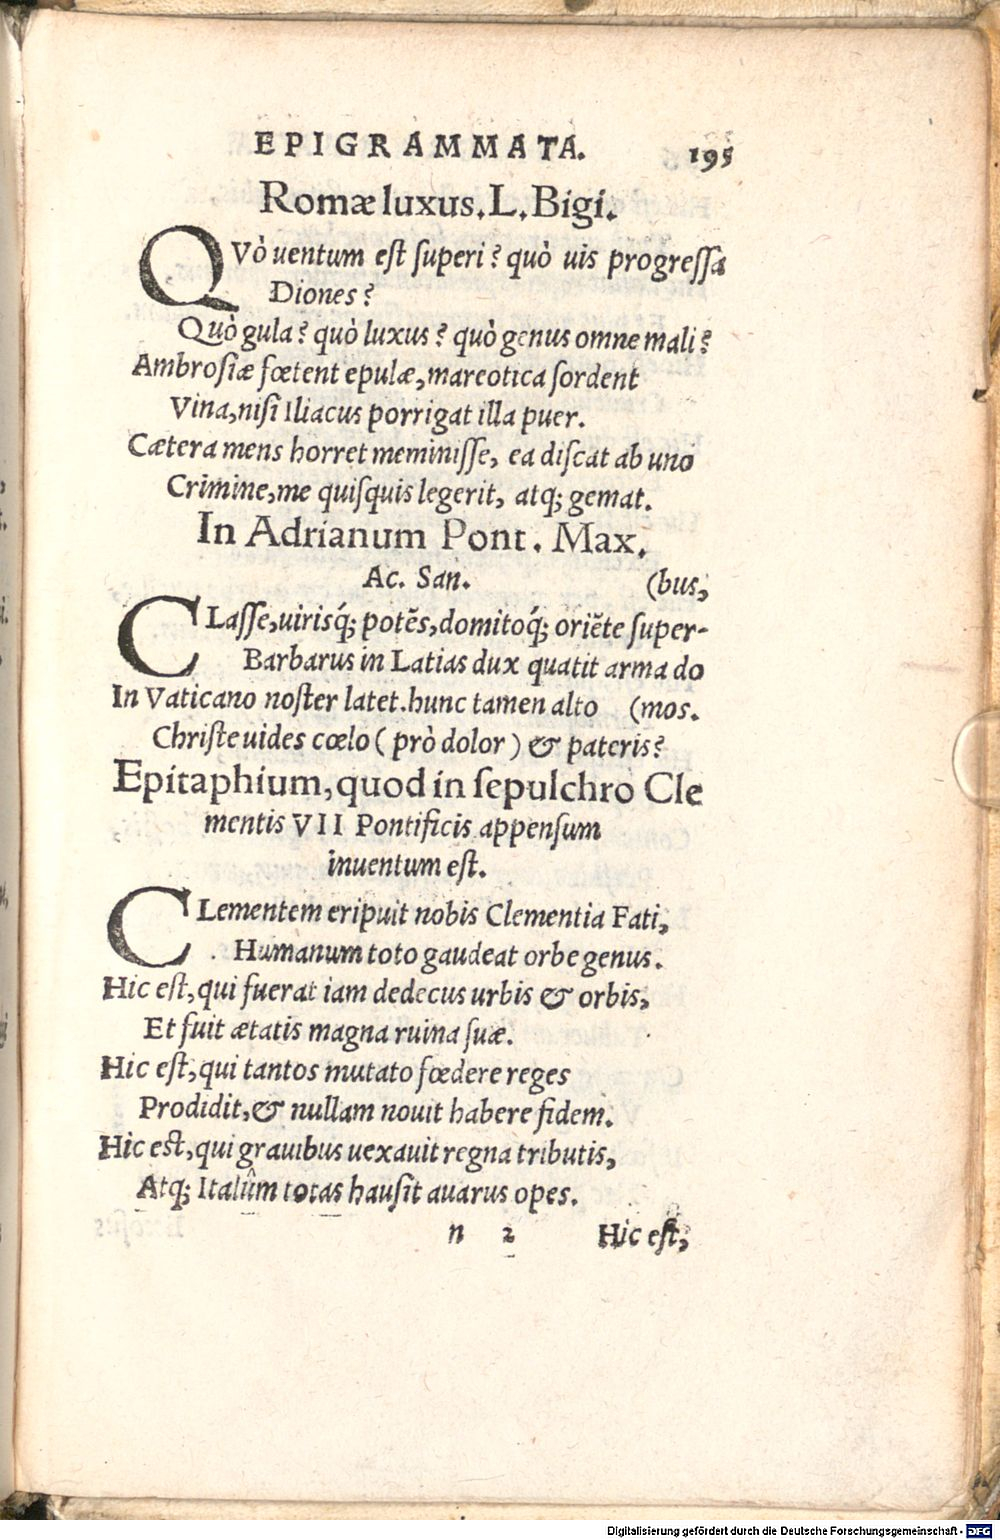 EPIGRAMMATA. 195
Romæ luxus. L. Bigi.
QVò uentum est superi? quò uis progressa
Diones?
Quò gula? quò luxus? quò genus omne mali?
Ambrosiæ fœtent epulæ, mareotica sordent
Vina, nisi Iliacus porrigat illa puer.
Cætera mens horret meminisse, ea discat ab uno
Crimine, me quisquis legerit, atq; gemat.
In Adrianum Pont. Max.
Ac. San. (bus,
CLasse, uirisq́; potẽs, domitoq́; oriẽte super-
Barbarus in Latias dux quatit arma do
In Vaticano noster latet. hunc tamen alto (mos.
Christe uides cœlo ( prò dolor ) & pateris?
Epitaphium, quod in sepulchro Cle
mentis VII Pontificis appensum
inuentum est.
CLementem eripuit nobis Clementia Fati,
Humanum toto gaudeat orbe genus.
Hic est, qui fuerat iam dedecus urbis & orbis,
Et fuit ætatis magna ruina suæ.
Hic est, qui tantos mutato fœdere reges
Prodidit, & nullam nouit habere fidem.
Hic est, qui grauibus uexauit regna tributis,
Atq; Italûm totas hausit auarus opes.
n 2 Hic est,
Digitalisierung gefördert durch die Deutsche Forschungsgemeinschaft - DFG